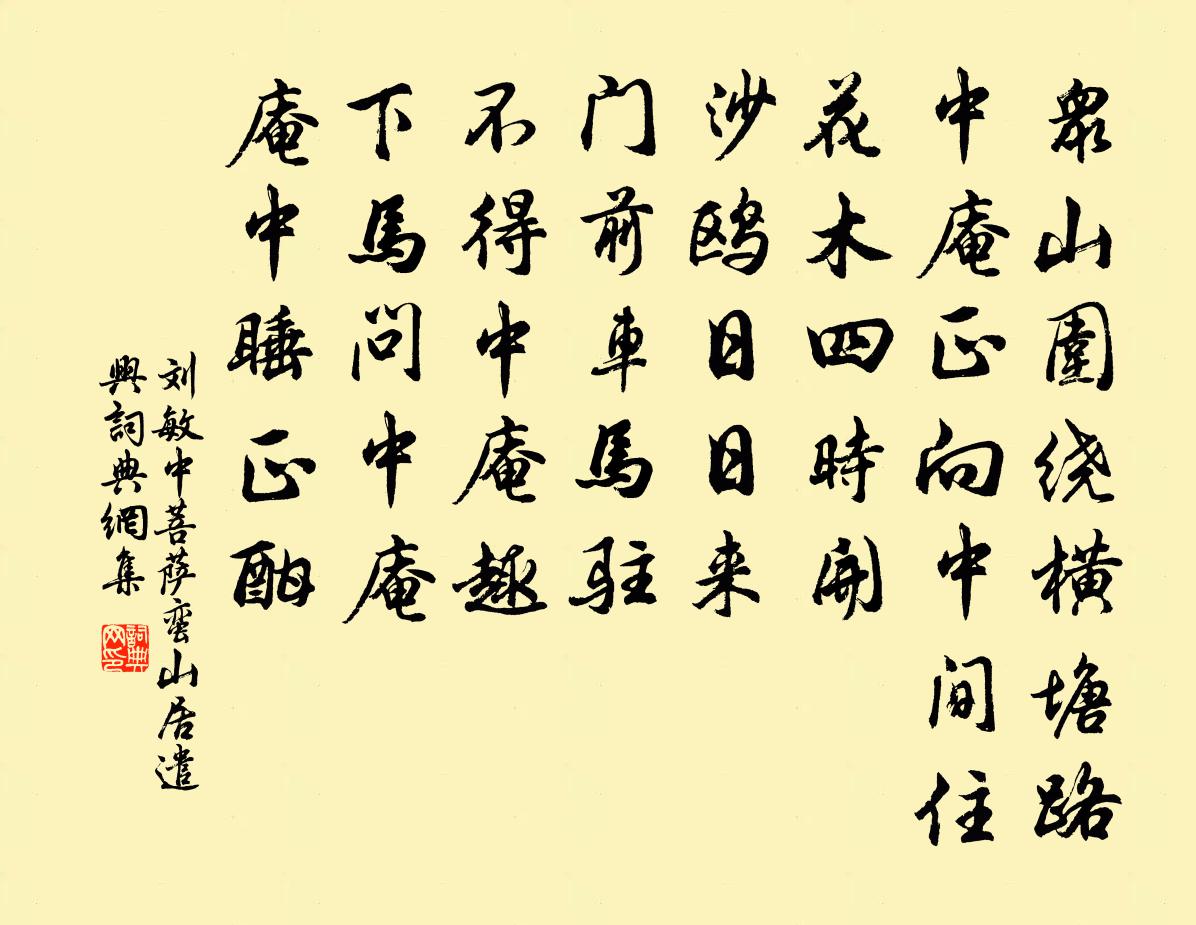 眾山圍绕橫塘路
中庵正向中间住
花木四時開
沙鸥日日来
门前車馬駐
不得中庵趣
下馬问中庵
庵中睡正酣
刘敏中菩萨蛮山居遣
興詞典網集
詞典网印